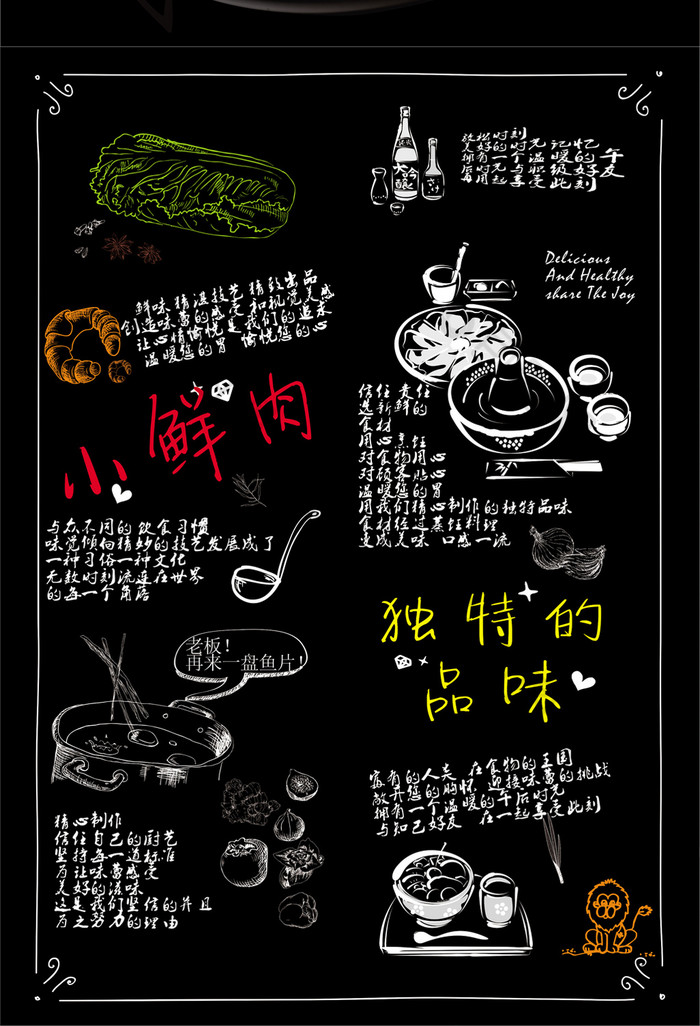 鲜味 精湛技艺 精致出品
创造味蕾的感受 和视觉美感
让心情愉悦是 我们的追求
温暖您的胃 愉悦您的心
小鲜肉
与众不同的饮食习惯
味觉倾向精妙的技艺发展成了
一种习俗一种文化
无数时刻流连在世界
的每一个角落
老板！
再来一盘鱼片！
精心制作
信任自己的厨艺
坚持每一道标准
为让味蕾感受
美好的滋味
这是我们坚信的并且
为之努力的理由
大吟醸
时刻
美好的时光 记忆
拥有一个温暖的午
后 好友
再用 一起享受此刻
Delicious
And Healthy
share The Joy
信任 责任
选新鲜的
食材
用心烹饪
对食物用心
对顾客贴心
温暖您的胃
用我们精心制作的独特品味
食材经过蒸饪料理
变成美味 口感一流
独特的
品味
富有的人类 在食物的王国
敞开您的胸怀 迎接味蕾的挑战
拥有一个温暖的午后时光
与知己好友 在一起享受此刻